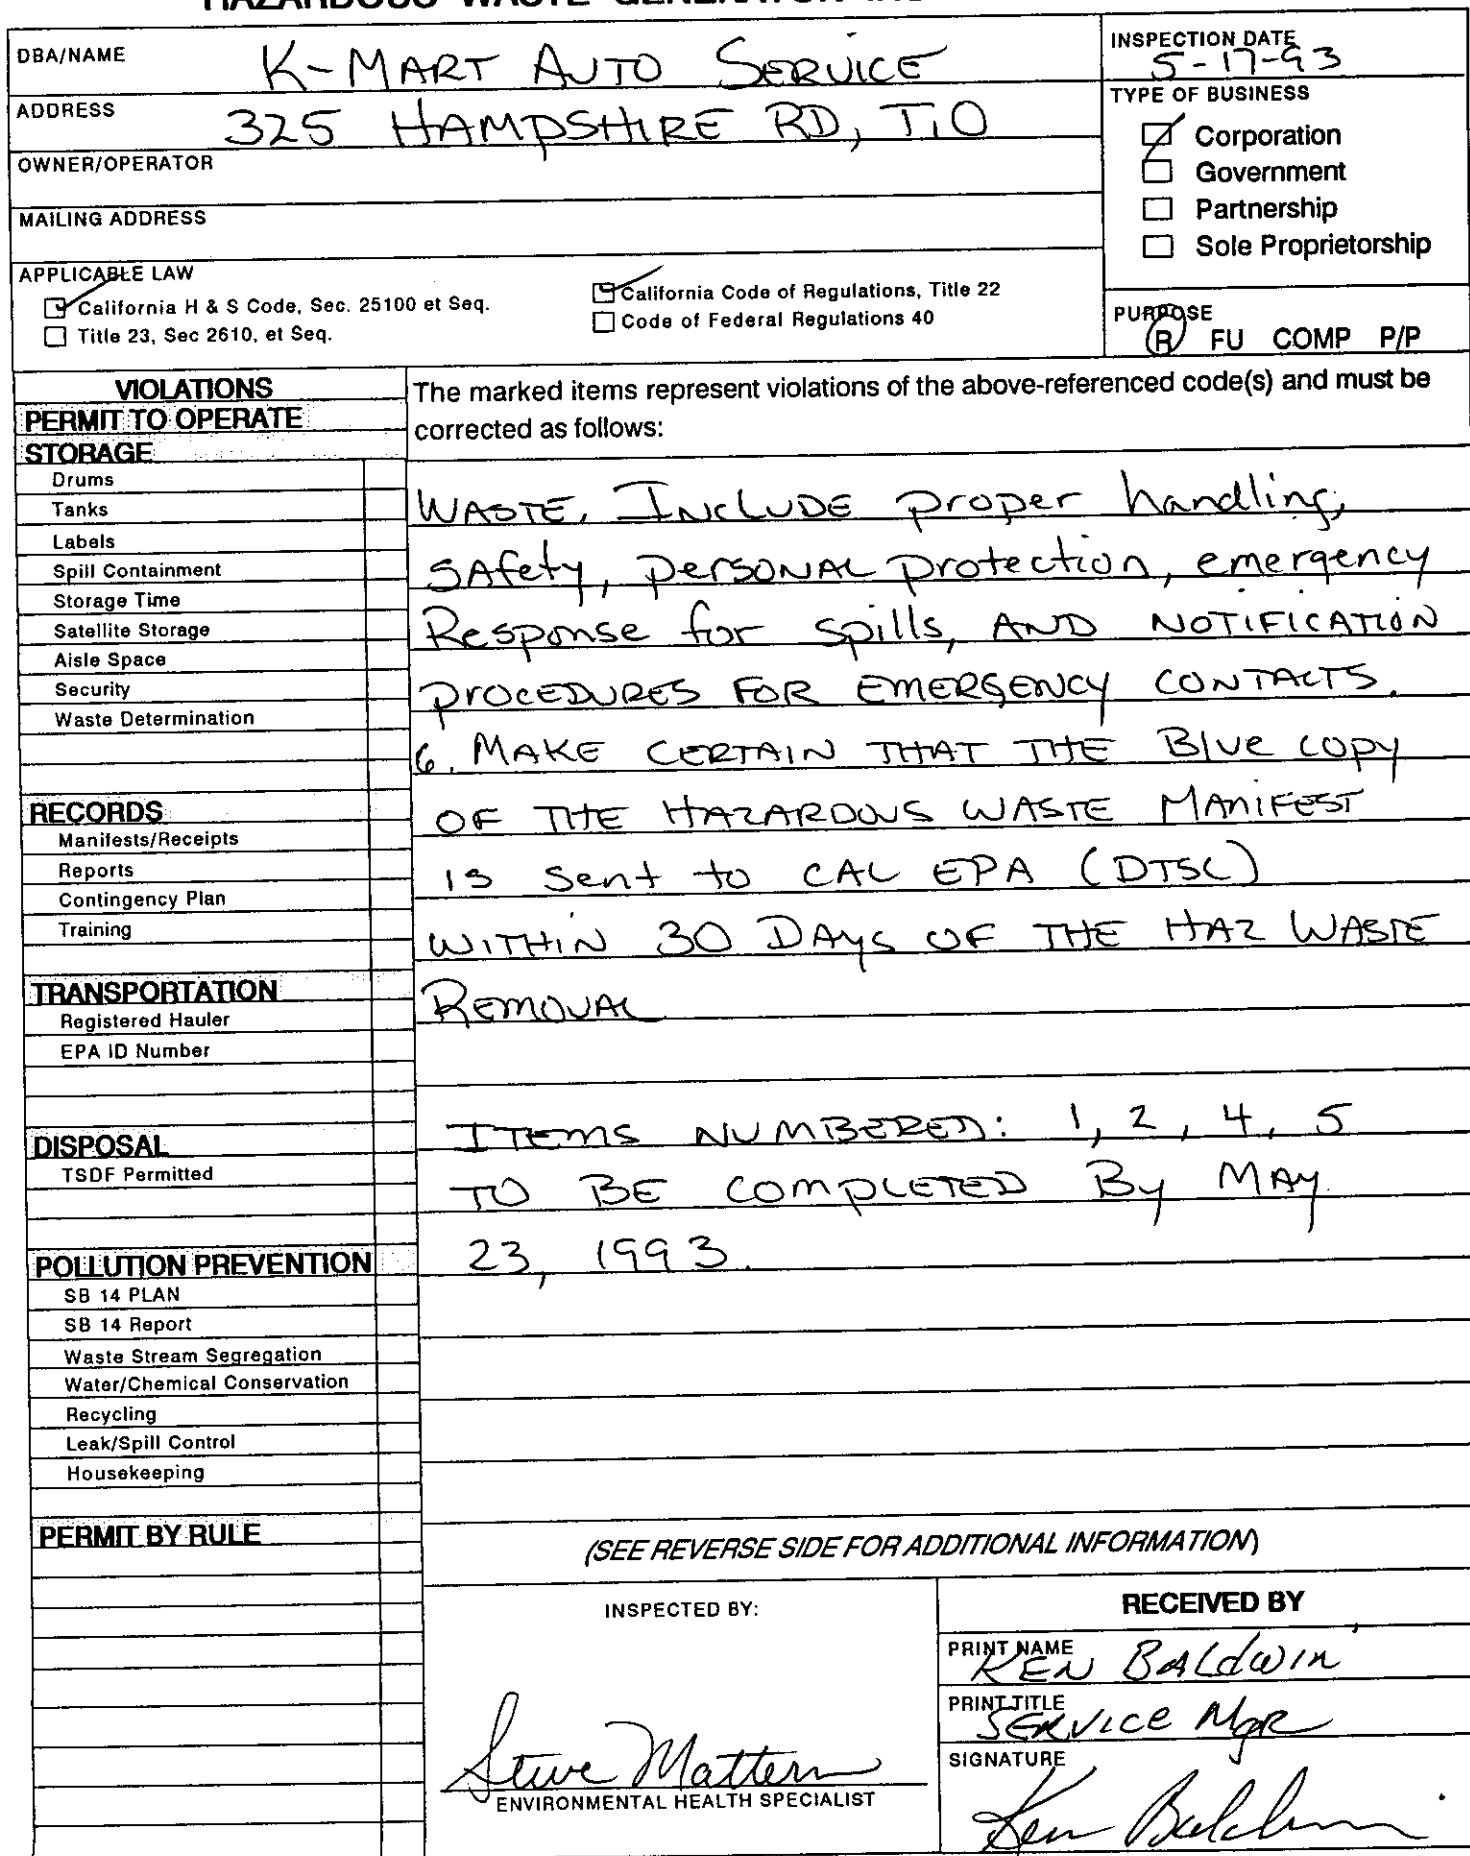 HAZARDOUS WASTE GENERATOR
DBA/NAME K-MART AUTO SERVICE
INSPECTION DATE 5-17-93
ADDRESS 325 HAMPSHIRE RD, T.O
TYPE OF BUSINESS
Corporation
Government
Partnership
Sole Proprietorship
OWNER/OPERATOR
MAILING ADDRESS
APPLICABLE LAW
California H & S Code, Sec. 25100 et Seq.
California Code of Regulations, Title 22
Title 23, Sec 2610, et Seq.
Code of Federal Regulations 40
PURPOSE
R FU COMP P/P
VIOLATIONS
PERMIT TO OPERATE
STORAGE
Drums
Tanks
Labels
Spill Containment
Storage Time
Satellite Storage
Aisle Space
Security
Waste Determination
RECORDS
Manifests/Receipts
Reports
Contingency Plan
Training
TRANSPORTATION
Registered Hauler
EPA ID Number
DISPOSAL
TSDF Permitted
POLLUTION PREVENTION
SB 14 PLAN
SB 14 Report
Waste Stream Segregation
Water/Chemical Conservation
Recycling
Leak/Spill Control
Housekeeping
PERMIT BY RULE
The marked items represent violations of the above-referenced code(s) and must be
corrected as follows:
WASTE. INCLUDE proper handling,
SAfety, personAL protection, emergency
Response for spills, AND NOTIFICATION
PROCEDURES FOR EMERGENCY CONTACTS.
6. MAKE CERTAIN THAT THE Blue copy
OF THE HAZARDOUS WASTE MANIFEST
is sent to CAL EPA (DTSC)
WITHIN 30 DAYS OF THE HAZ WASTE
REMOVAL
ITEMS NUMBERED: 1, 2, 4, 5
TO BE COMPLETED By MAY
23, 1993.
(SEE REVERSE SIDE FOR ADDITIONAL INFORMATION)
INSPECTED BY:
Steve Mattern
ENVIRONMENTAL HEALTH SPECIALIST
RECEIVED BY
PRINT NAME KEN BALdwin
PRINT TITLE SERVICE MgR
SIGNATURE
Ken Baldwin